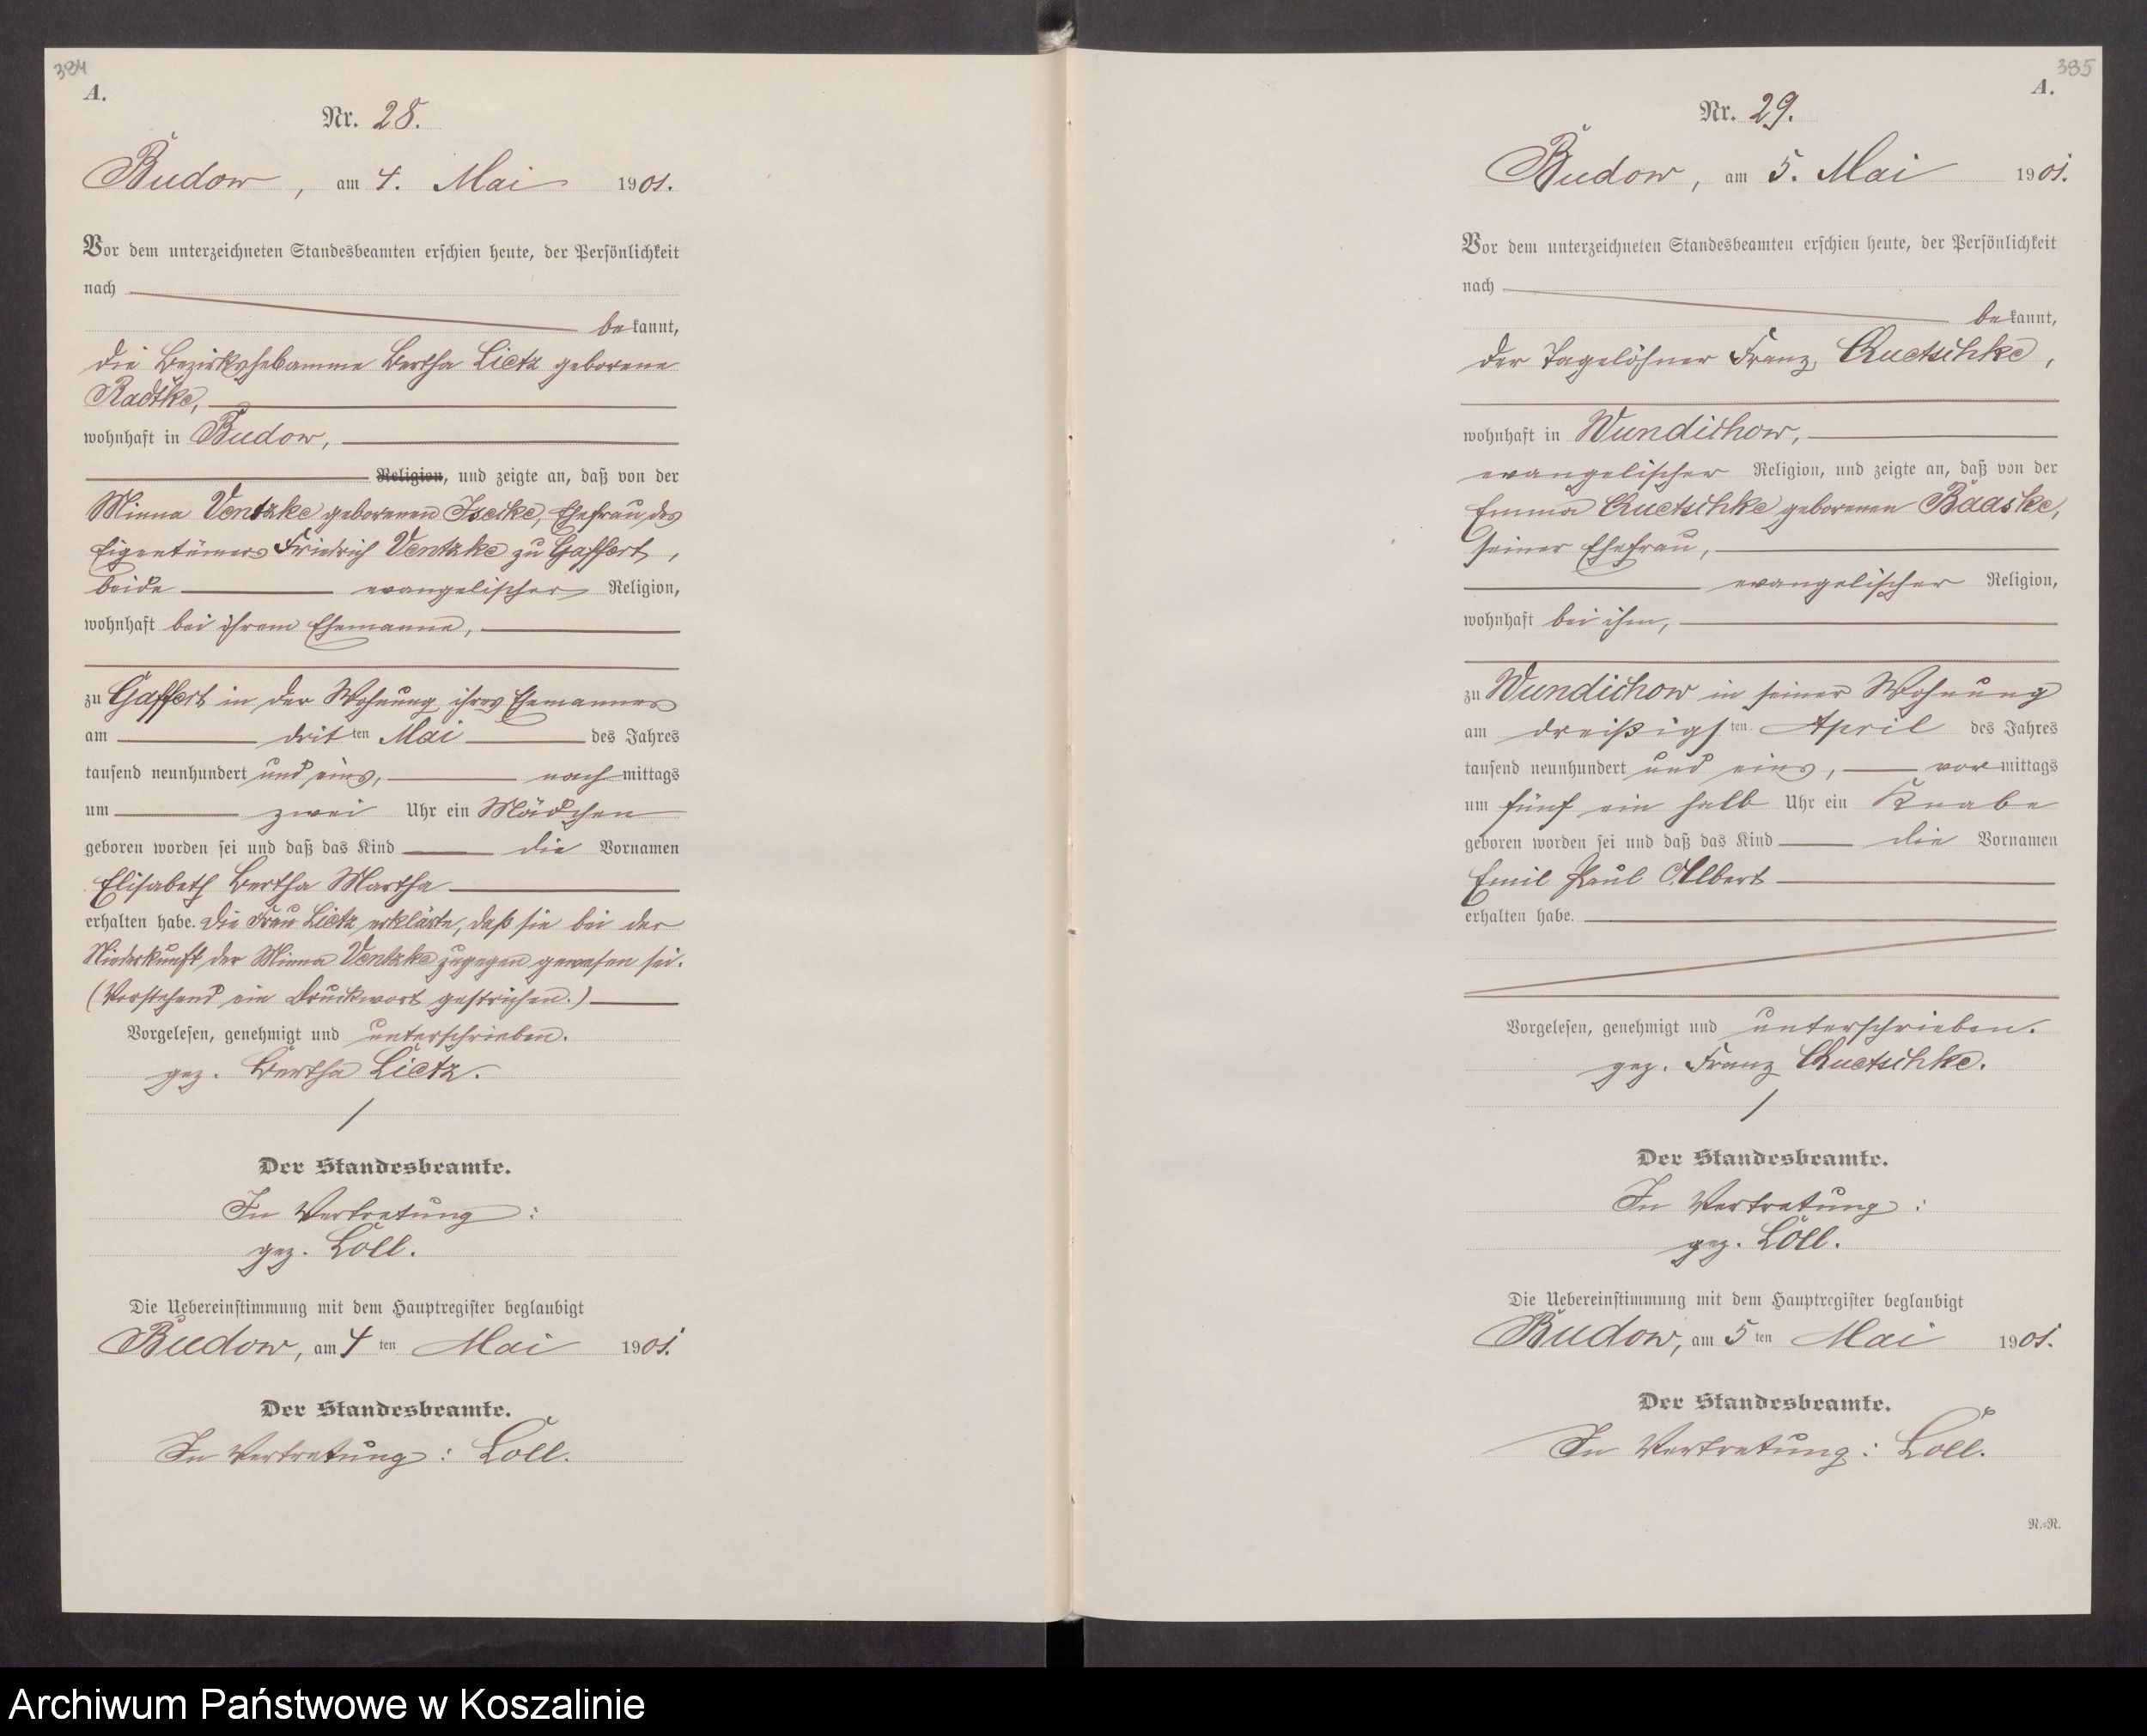 394
A.
Nr. 28.
Budow, am 4. Mai 1901.
Vor dem unterzeichneten Standesbeamten erschien heute, der Persönlichkeit
nach
bekannt,
die Bezirkshebamme Bertha Lietz geborene
Radtke,
wohnhaft in Budow,
Religion, und zeigte an, daß von der
Minna Ventzke geborenen Iseske, Ehefrau des
Eigentümers Friedrich Ventzke zu Gaffert,
beide evangelischer Religion,
wohnhaft bei ihrem Ehemanne,
zu Gaffert in der Wohnung ihres Ehemannes
am dritten Mai des Jahres
tausend neunhundert und eins, nachmittags
um zwei Uhr ein Mädchen
geboren worden sei und daß das Kind die Vornamen
Elisabeth Bertha Martha
erhalten habe. Die Frau Lietz erklärte, daß sie bei der
Niederkunft der Minna Ventzke zugegen gewesen sei.
(Vorstehend ein Druckwort gestrichen.)
Vorgelesen, genehmigt und unterschrieben.
gez. Bertha Lietz.
Der Standesbeamte.
In Vertretung:
gez. Loll.
Die Uebereinstimmung mit dem Hauptregister beglaubigt
Budow, am 4ten Mai 1901.
Der Standesbeamte.
In Vertretung: Loll.
395
A.
Nr. 29.
Budow, am 5. Mai 1901.
Vor dem unterzeichneten Standesbeamten erschien heute, der Persönlichkeit
nach
bekannt,
der Tagelöhner Franz Quetschke,
wohnhaft in Wundichow,
evangelischer Religion, und zeigte an, daß von der
Emma Quetschke geborenen Baaske,
seiner Ehefrau,
evangelischer Religion,
wohnhaft bei ihm,
zu Wundichow in seiner Wohnung
am dreißigsten April des Jahres
tausend neunhundert und eins, vormittags
um fünf ein halb Uhr ein Knabe
geboren worden sei und daß das Kind die Vornamen
Emil Paul Albert
erhalten habe.
Vorgelesen, genehmigt und unterschrieben.
gez. Franz Quetschke.
Der Standesbeamte.
In Vertretung:
gez. Loll.
Die Uebereinstimmung mit dem Hauptregister beglaubigt
Budow, am 5ten Mai 1901.
Der Standesbeamte.
In Vertretung: Loll.
N.=N.
Archiwum Państwowe w Koszalinie